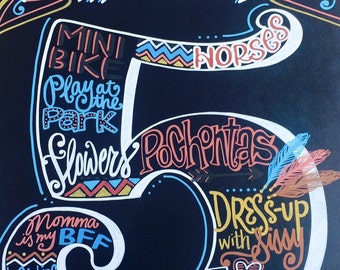 MINI
BIKE
HORSES
Play at
the
Park
Flowers
Pochontas
DRess-up
with Sissy
Momma
is my
BFF